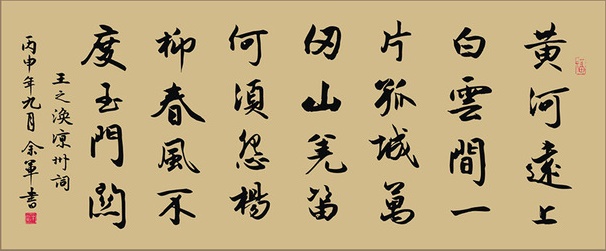 黄河遠上
白雲間一
片孤城萬
仞山羌笛
何須怨楊
柳春風不
度玉門關
王之渙凉州詞
丙申年九月余軍書